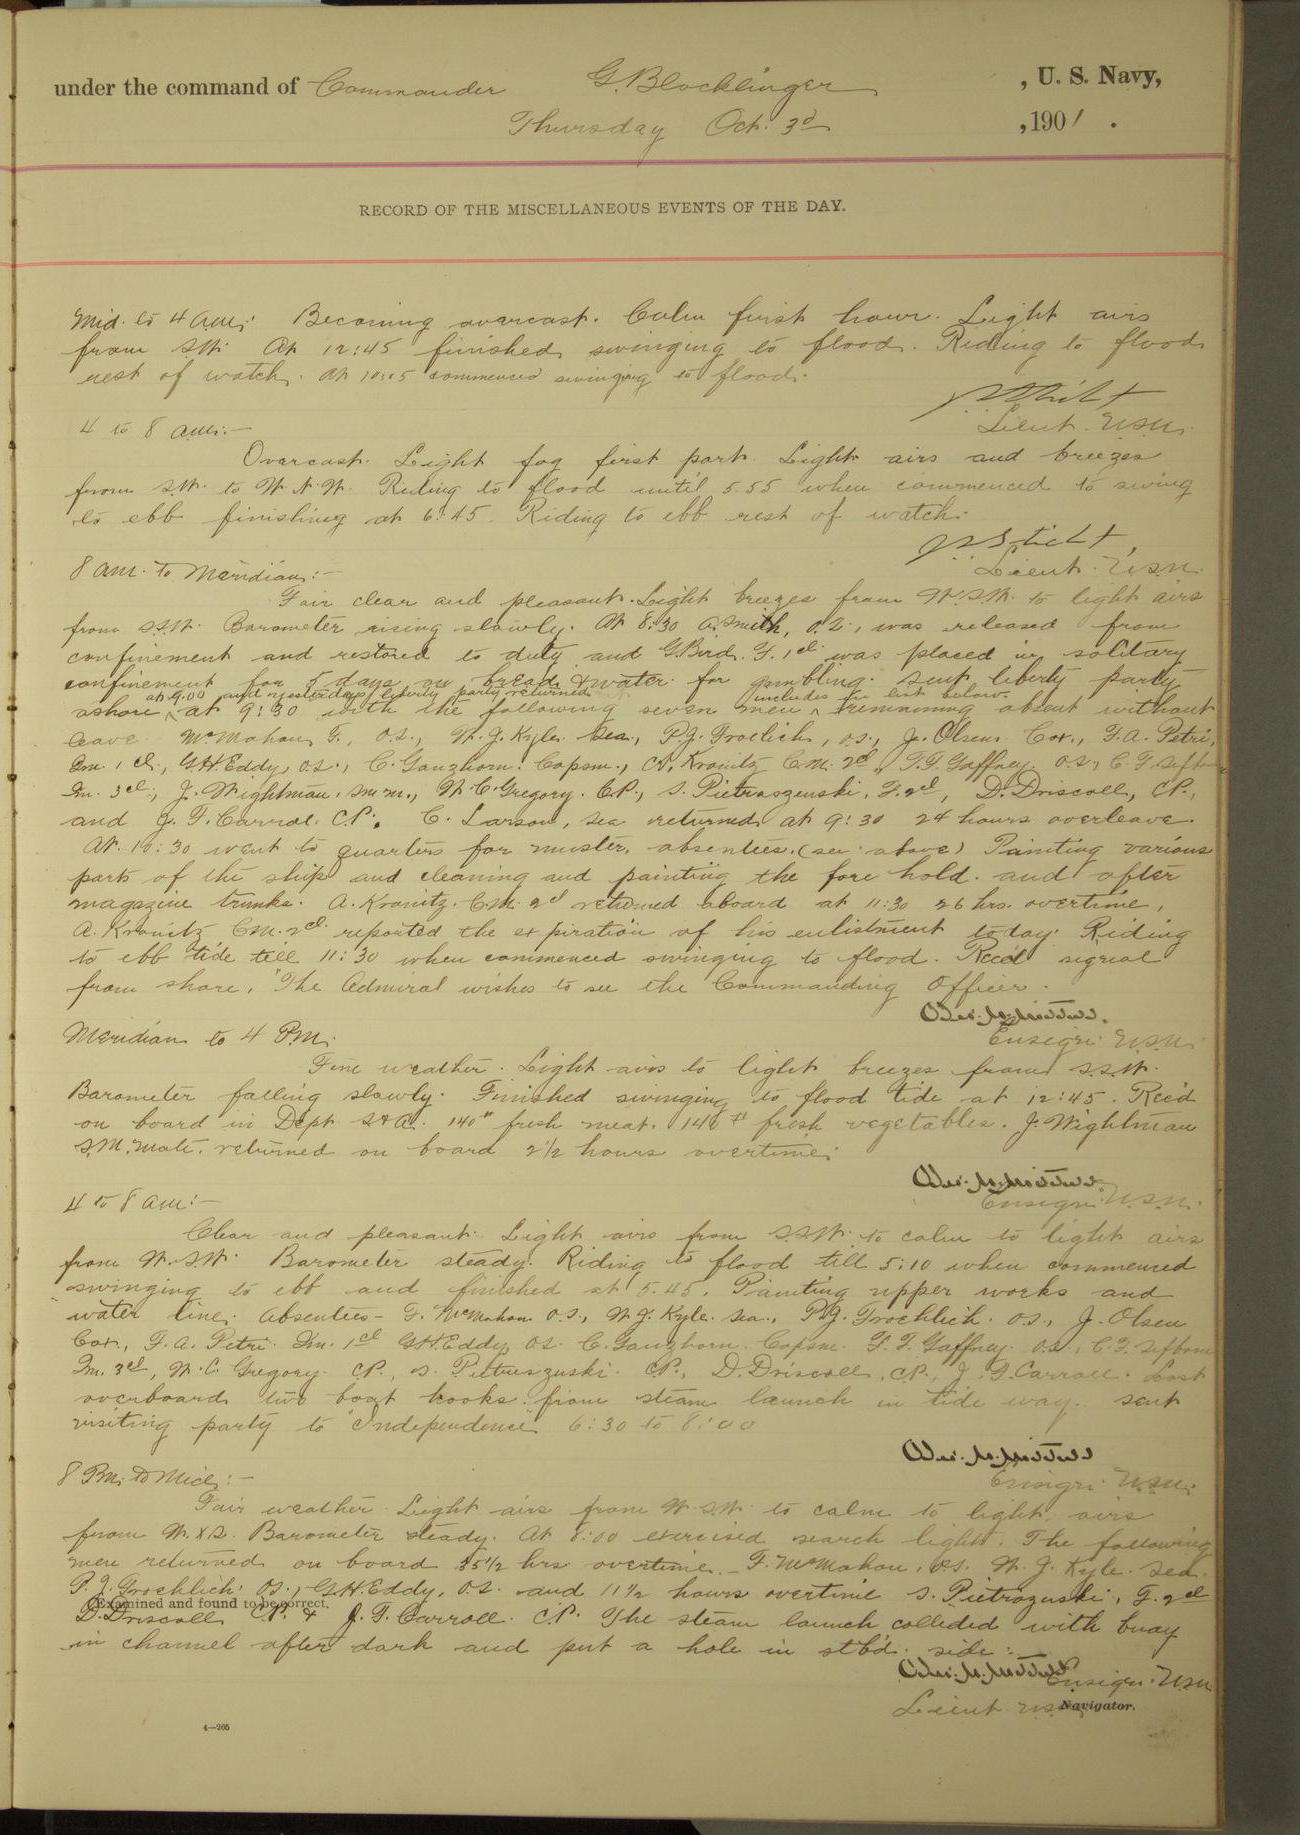 under the command of Commander G. Blocklinger , U. S. Navy,
Thursday Oct. 3d ,1901 .
RECORD OF THE MISCELLANEOUS EVENTS OF THE DAY.
Mid. to 4 a.m: Becoming overcast. Calm first hour. Light airs
from SW. At 12:45 finished swinging to flood. Riding to flood
rest of watch. At commenced swinging to flood.
Lieut. U.S.N.
4 to 8 a.m:—
Overcast. Light fog first part. Light airs and breezes
from S.W. to W.N.W. Riding to flood until 5.55 when commenced to swing
to ebb finishing at 6:45. Riding to ebb rest of watch.
Lieut. U.S.N.
8 a.m. to Meridian:—
Fair clear and pleasant. Light breezes from W.S.W. to light airs
from S.S.W. Barometer rising slowly. At 8:30 A. Smith, was released from
confinement and restored to duty and G. Bird. F. 1cl was placed in solitary
confinement for 5 days on bread & water for gambling. Sent liberty party
at 9.00 and yesterdays liberty party returned includes in list below
ashore at 9:30 with the following seven men remaining absent without
leave McMahon F., O.S., W. J. Kyle. Sea., P.J. Froelich, O.S., J. Olsen Cox., F.A. Petri,
Qm. 1 cl., G.H. Eddy, O.S., C. Ganzhorn. Copsm., A. Kranitz C.M. 2d, F.F. Gaffney O.S., C. F. Sefbom
Qm. 3cl., J. Wightman. S.M.M., W. C. Gregory. C.P., S. Pietraszenski, F. 2cl, D. Driscoll, C.P.,
and J. F. Carrol. C.P. C. Larson, Sea returned at 9:30 24 hours overleave.
At 10:30 went to quarters for muster, absentees. (see above) Painting various
parts of the ship and cleaning and painting the fore hold. and after
magazine trunks. A. Kranitz. C.M. 2d returned aboard at 11:30 26 hrs. overtime,
A. Kranitz C.M. 2cl. reported the expiration of his enlistment today. Riding
to ebb tide till 11:30 when commenced swinging to flood. Rec'd signal
from shore, "The Admiral wishes to see the Commanding Officer.
Ensign U.S.N.
Meridian to 4 P.M.
Fine weather. Light airs to light breezes from S.S.W.
Barometer falling slowly. Finished swinging to flood tide at 12:45. Rec'd
on board in Dept. S & A. 140# fresh meat. 140# fresh vegetables. J. Wightman
S.M. Mate. returned on board 2½ hours overtime.
Ensign U.S.N.
4 to 8 a.m:—
Clear and pleasant. Light airs from S.S.W. to calm to light airs
from W.S.W. Barometer steady. Riding to flood till 5:10 when commenced
swinging to ebb and finished at 5.45. Painting upper works and
water line. Absentees - F. McMahon O.S., W. J. Kyle. Sea., P.J. Froehlich. O.S., J. Olsen
Cox., F. A. Petri. Qm. 1cl G.H. Eddy O.S. C. Ganzhorn. Copsm. F. F. Gaffney. O.S., C. F. Sefbom
Qm. 3cl, W. C. Gregory. C.P., S. Pietruszuski. C.P., D. Driscoll, C.P., J. F. Carroll. Lost
overboard two boat hooks from steam launch in tide way. Sent
visiting party to "Independence" 6:30 to 8:00
Ensign U.S.N.
8 P.M. to Mid.:—
Fair weather. Light airs from W.S.W. to calm to light airs
from W.XS. Barometer steady. At 8:00 exercised search light. The following
men returned on board 35½ hrs overtime - F. McMahon, O.S. W. J. Kyle. Sea.
P. J. Froehlich. O.S., G.H. Eddy, O.S. and 11½ hours overtime S. Pietrozuski, F. 2cl
Examined and found to be correct.
D. Driscoll C.P. & J. F. Carroll. C.P. The steam launch collided with buoy
in channel after dark and put a hole in stb'd. side.
Ensign. U.S.N.
Lieut. U.S. Navigator.
4—205